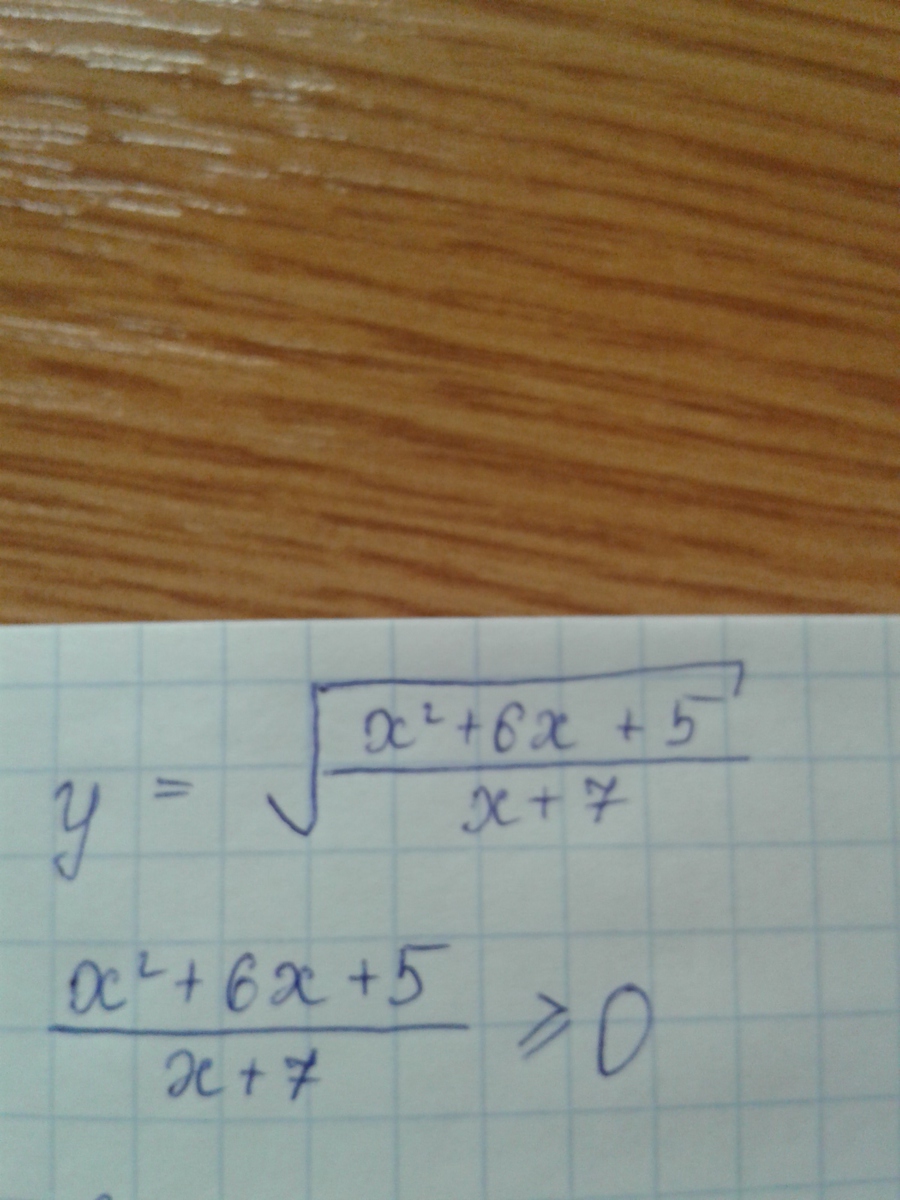 y = √((x² + 6x + 5)/(x + 7))
(x² + 6x + 5)/(x + 7) ⩾ 0